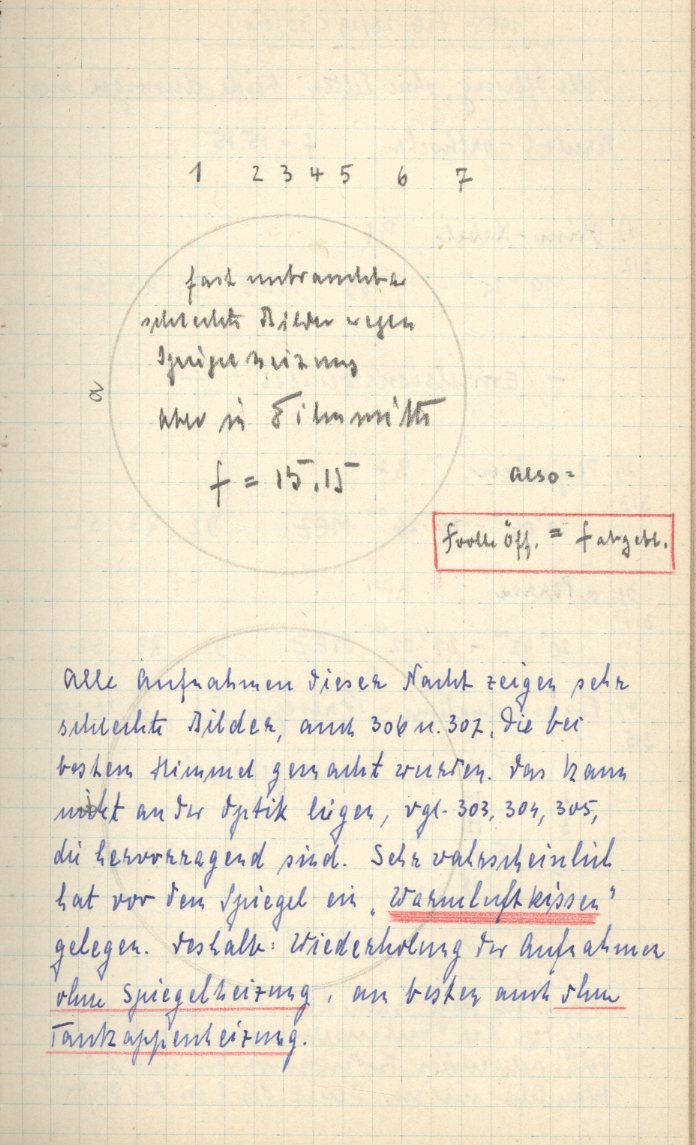 1 2 3 4 5 6 7
fast unbrauchbar
schlechte Bilder wegen
Spiegelheizung
aber in Filmmitte
a
f = 15.15
also =
f volle Öff. = f abgebl.
Alle Aufnahmen dieser Nacht zeigen sehr
schlechte Bilder, auch 306 u. 307, die bei
bestem Himmel gemacht wurden. Das kann
nicht an der Optik liegen, vgl. 303, 304, 305,
die hervorragend sind. Sehr wahrscheinlich
hat vor dem Spiegel ein "Warmluftkissen"
gelegen. Deshalb: Wiederholung der Aufnahmen
ohne Spiegelheizung, am besten auch ohne
Taukappenheizung.